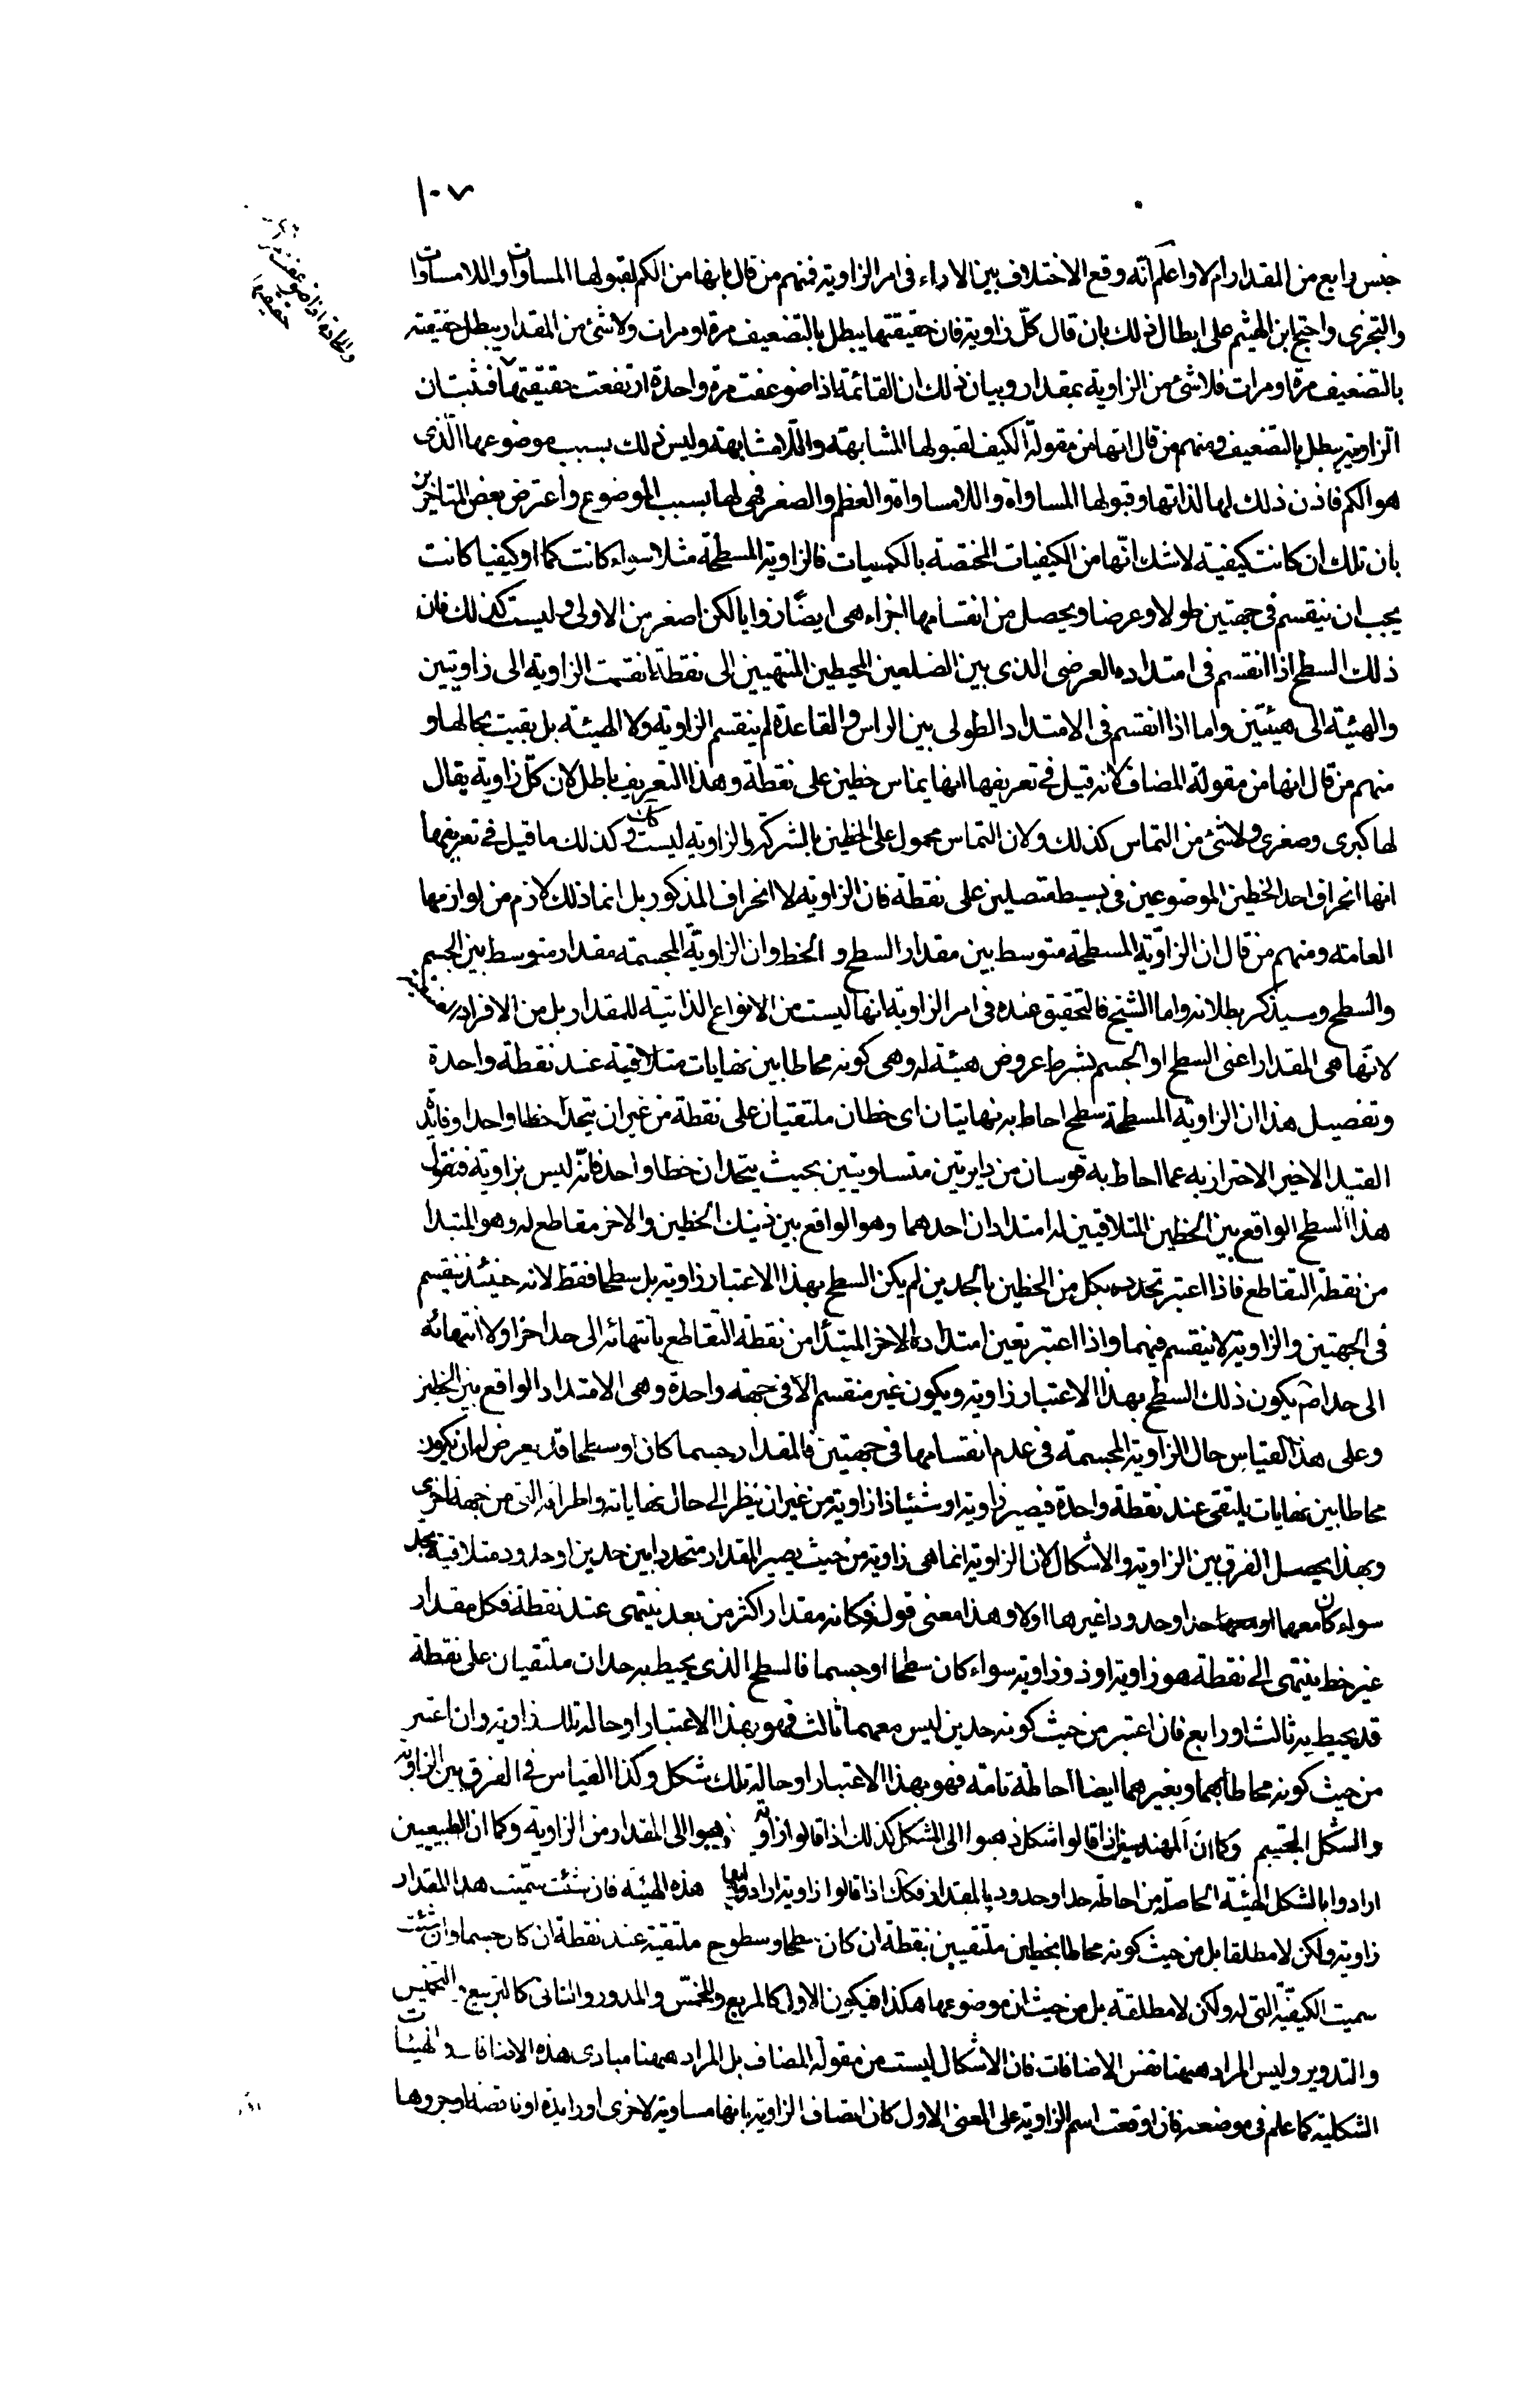 ١٠٧
جنس رابع من المقدار ام لا واعلم انّه وقع الاختلاف بين الاراء فى امر الزاوية فمنهم من قال بانها من الكم لقبولها المساوات واللامساوات
والتجزى واحتج ابن الهيثم على ابطال ذلك بان قال كلّ زاوية فان حقيقتها يبطل بالتضعيف مرة او مرات ولا شئ من المقدار يبطل حقيقته
بالتضعيف مرة او مرات فلا شئ من الزاوية بمقدار وبيان ذلك ان القائمة اذا ضوعفت مرة واحدة ارتفعت حقيقتها فثبت ان
الزاوية يبطل بالتضعيف ومنهم من قال انها من مقولة الكيف لقبولها المشابهة واللامشابهة وليس ذلك بسبب موضوعها الّذى
هو الكم فاذن ذلك لها لذاتها وقبولها المساواة واللامساواة والعظم والصغر فهى لها بسبب الموضوع واعترض بعض المتاخرين
بان تلك ان كانت كيفية لا شك انّها من الكيفيات المختصة بالكميات فالزاوية المسطحة مثلا سواء كانت كما او كيفيا كانت
يجب ان ينقسم فى جهتين طولا وعرضا ويحصل من انقسامها اجزاء هى ايضًا زوايا لكن اصغر من الاولى وليست كذلك فان
ذلك السطح اذا انقسم فى امتداده العرضى الذى بين الضلعين المحيطين المنتهيين الى نقطة انقسمت الزاوية الى زاويتين
والهيئة الى هيئتين واما اذا انقسم فى الامتداد الطولى بين الراس والقاعدة لم ينقسم الزاوية ولا الهيئة بل بقيت بحالها و
منهم من قال انها من مقولة المضاف لانه قيل فى تعريفها انها يماس خطين على نقطة وهذا التعريف باطل لان كلّ زاوية يقال
لها كبرى وصغرى ولا شئ من التماس كذلك ولان التماس محمول على الخطين بالشركة والزاوية ليست كك وكذلك ما قيل فى تعريفها
انها انحراف احد الخطين الموضوعين فى بسيط متصلين على نقطة فان الزاوية لا انحراف المذكور بل انما ذلك لازم من لوازمها
العامة ومنهم من قال ان الزاوية المسطحة متوسط بين مقدار السطح و الخط وان الزاوية المجسمة مقدار متوسط بين الجسم
والسطح وسيذكر بطلانه واما الشيخ فالتحقيق عنده فى امر الزاوية انها ليست من الانواع الذاتية للمقدار بل من الافراد
لانّها هى المقدار اعنى السطح او الجسم بشرط عروض هيئة له وهى كونه محاطا بين نهايات متلاقية عند نقطة واحدة
وتفصيل هذا ان الزاوية المسطحة سطح احاط به نهايتان اى خطان ملتقيان على نقطة من غير ان يتحدا خطا واحدا وفائدة
القيد الاخير الاحتراز به عما احاط به قوسان من دايرتين متساويتين بحيث يتحدان خطا واحد فانّه ليس بزاوية فنقول
هذا السطح الواقع بين الخطين المتلاقيين له امتدادان احدهما وهو الواقع بين ذينك الخطين والاخر مقاطع له وهو المبتدا
من نقطة التقاطع فاذا اعتبر تحدده بكل من الخطين بالحدين لم يكن السطح بهذا الاعتبار زاوية بل سطحا فقط لانه حينئذ ينقسم
فى الجهتين والزاوية لا ينقسم فيهما واذا اعتبر تعين امتداده الاخر المبتدأ من نقطة التقاطع بانتهائه الى حد اخر او لا انتهائه
الى حد اصم يكون ذلك السطح بهذا الاعتبار زاوية ويكون غير منقسم الا فى جهة واحدة وهى الامتداد الواقع بين الخطين
وعلى هذا القياس حال الزاوية المجسمة فى عدم انقسامها فى جهتين فالمقدار جسما كان او سطحا قد يعرض له ان يكون
محاطا بين نهايات يلتقى عند نقطة واحدة فيصير زاوية او شيئا ذا زاوية من غير ان ينظر الى حال نهاياته واطرافه التى من جهة اخرى
وبهذا يحصل الفرق بين الزاوية والاشكال لان الزاوية انما هى زاوية من حيث يصير المقدار متحددا بين حدين او حدود متلاقية بحد
سواء كان معهما حدا وحدودا غيرها اولا وهذا معنى قوله فكانه مقدار اكثر من بعد ينتهى عند نقطة فكل مقدار
غير خط ينتهى الى نقطة هو زاوية او ذو زاوية سواء كان سطحا او جسما فالسطح الذى يحيط به حدان ملتقيان على نقطة
قد يحيط به ثالث او رابع فان اعتبر من حيث كونه حدين ليس معهما ثالث فهو بهذا الاعتبار او حالة تلك زاوية وان اعتبر
من حيث كونه محاطا بهما وبغيرهما ايضا احاطة تامة فهو بهذا الاعتبار او حالة تلك شكل وكذا القياس فى الفرق بين الزاوية
والشكل المجسم وكما انّ المهندسين اذا قالوا شكل ذهبوا الى الشكل كذلك اذا قالوا زاوية ذهبوا الى المقدار من الزاوية وكما ان الطبيعيين
ارادوا بالشكل الهيئة الحاصلة من احاطة حد او حدود بالمقدار فكك اذا قالوا زاوية ارادوا بها هذه الهيئة فان شئت سمّيت هذا المقدار
زاوية ولكن لا مطلقا بل من حيث كونه محاطا بخطين ملتقيين بنقطة ان كان سطحا وسطوح ملتقية عند نقطة ان كان جسما وان شئت
سميت الكيفيّة التى له ولكن لا مطلقة بل من حيث ان موضوعها هكذا فيكون الاول كالمربع والمخمّس والمدور والثانى كالتربيع والتخميس
والتدوير وليس المراد ههنا نفس الاضافات فان الاشكال ليست من مقولة المضاف بل المراد ههنا مبادى هذه الاضافات والهيئات
الشكلية كما علم فى موضعه فان اوقعت اسم الزاوية على المعنى الاول كان اتصاف الزاوية بانها مساوية لاخرى او زايدة او ناقصة او جزوها